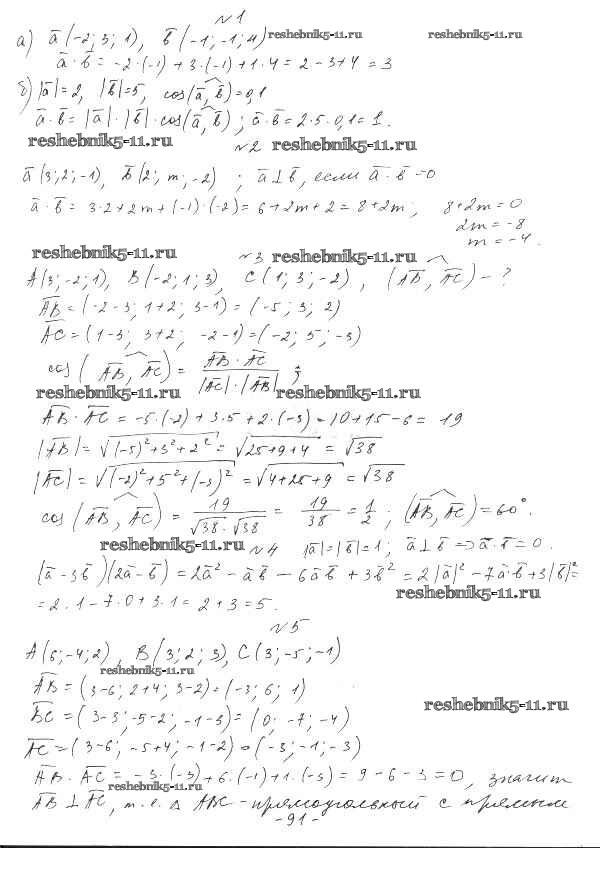 №1
а) a̅(-2; 3; 1), b̅(-1; -1; 4) reshebnik5-11.ru reshebnik5-11.ru
a̅·b̅ = -2·(-1)+3·(-1)+1·4 = 2-3+4 = 3
б) |a̅|=2, |b̅|=5, cos(a̅,b̅)=0,1
a̅·b̅ = |a̅|·|b̅|·cos(a̅,b̅); a̅·b̅ = 2·5·0,1 = 1.
reshebnik5-11.ru №2 reshebnik5-11.ru
a̅(3; 2; -1), b̅(2; m; -2); a̅⊥b̅, если a̅·b̅=0
a̅·b̅ = 3·2+2m+(-1)·(-2) = 6+2m+2 = 8+2m; 8+2m=0
2m=-8
m=-4.
reshebnik5-11.ru №3 reshebnik5-11.ru
A(3; -2; 1), B(-2; 1; 3), C(1; 3; -2), (AB, AC) - ?
AB = (-2-3; 1+2; 3-1) = (-5; 3; 2)
AC = (1-3; 3+2; -2-1) = (-2; 5; -3)
cos(AB, AC) = AB·AC / |AC|·|AB| ;
reshebnik5-11.ru reshebnik5-11.ru
AB·AC = -5·(-2)+3·5+2·(-3) = 10+15-6 = 19
|AB| = √(-5)²+3²+2² = √25+9+4 = √38
|AC| = √(-2)²+5²+(-3)² = √4+25+9 = √38
cos(AB, AC) = 19/√38·√38 = 19/38 = 1/2; (AB, AC) = 60°.
reshebnik5-11.ru №4 |a̅|=|b̅|=1; a̅⊥b̅ => a̅·b̅=0.
(a̅-3b̅)(2a̅-b̅) = 2a̅²-a̅b̅-6a̅b̅+3b̅² = 2|a̅|²-7a̅·b̅+3|b̅|²=
reshebnik5-11.ru
= 2·1-7·0+3·1 = 2+3 = 5.
№5
A(6; -4; 2), B(3; 2; 3), C(3; -5; -1)
reshebnik5-11.ru
AB = (3-6; 2+4; 3-2) = (-3; 6; 1)
BC = (3-3; -5-2; -1-3) = (0; -7; -4) reshebnik5-11.ru
AC = (3-6; -5+4; -1-2) = (-3; -1; -3)
AB·AC = -3·(-3)+6·(-1)+1·(-3) = 9-6-3 = 0, значит
reshebnik5-11.ru
AB⊥AC, т.е. △ABC - прямоугольный с прямым
-91-